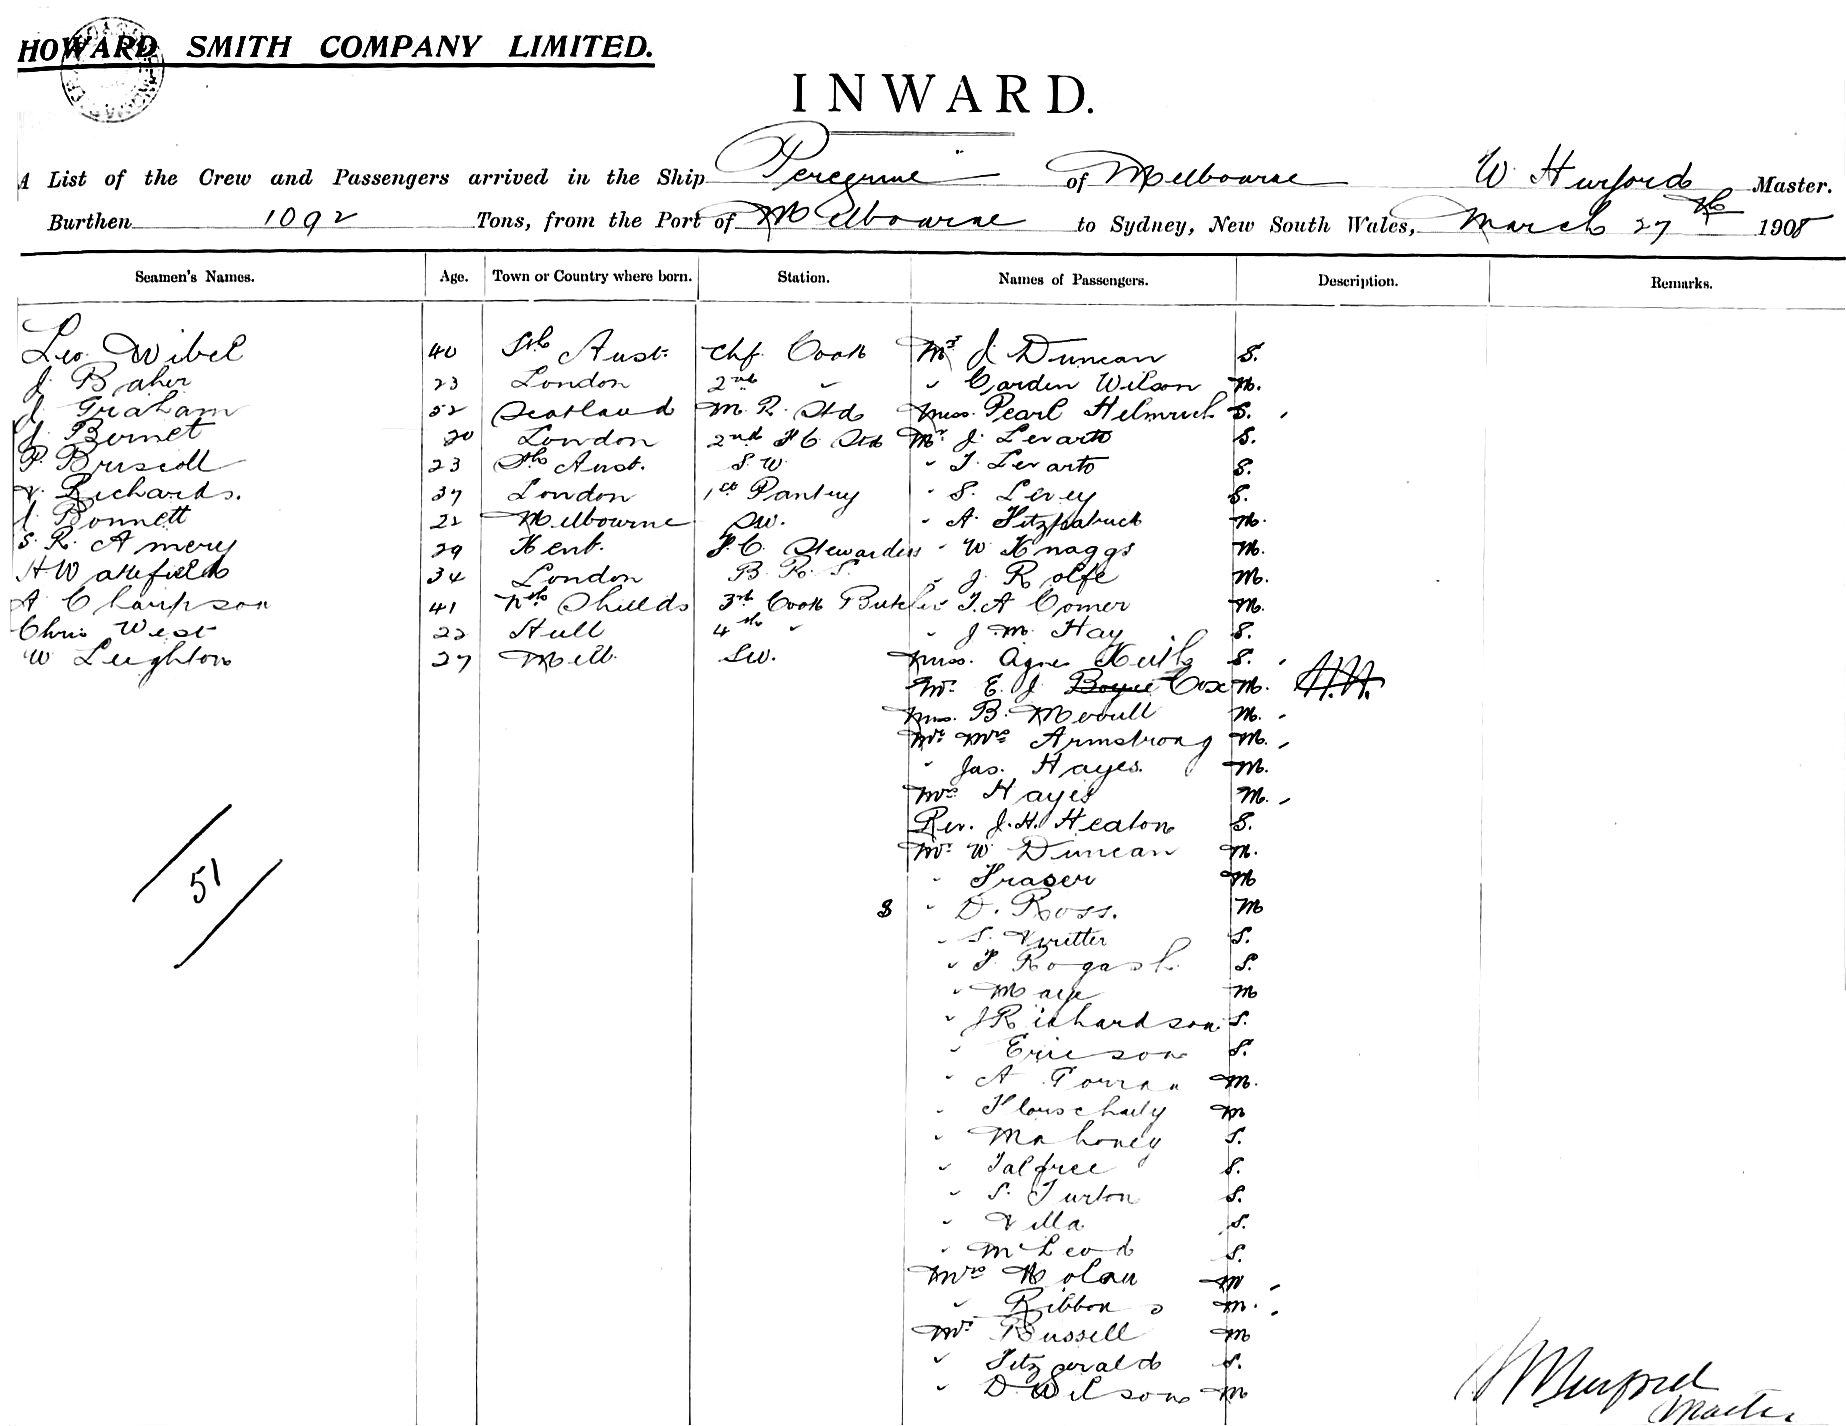 HOWARD SMITH COMPANY LIMITED.
INWARD.
A List of the Crew and Passengers arrived in the Ship Peregrine of Melbourne W Hurford Master.
Burthen 1092 Tons, from the Port of Melbourne to Sydney, New South Wales, March 27th 1908
Seamen's Names. Age. Town or Country where born. Station. Names of Passengers. Description. Remarks.
Leo Wibel 40 Sth Aust. Chf. Cook Mr J Duncan S.
J Baker 23 London 2nd " " Carden Wilson M.
J Graham 52 Scotland M. R. Std Miss Pearl Helmrich S.
J Bernet 20 London 2nd Std Mr J. Levarto S.
P. Briscoll 23 Sth Aust. S. W " T. Levarto S.
Richards. 37 London 1st Pantry " S. Levey S.
Bonnett 22 Melbourne SW. " A. Fitzpatrick M.
S. R. Amery 29 Kent. F. C. Stewardess " W Knaggs M.
H Wakefield 34 London B. R. S. " J. Rolfe M.
A Champson 41 Nth Shields 3rd Cook Butcher " T. A Comer M.
Chris West 22 Hull 4th " " J. M. Hay S.
W Leighton 27 Melb. SW. Miss. Agnes Keith S.
Mr. E. J Boyce Cox M.
Mrs. B. Merrill M.
Mr. Mrs Armstrong M.
" Jas. Hayes. M.
Mrs Hayes M.
Rev. J. H. Heaton S.
Mr. W Duncan M.
" Fraser M
51
" D. Ross. M
" S. S.
" Rogash S.
" Maye M
" J Richardson S.
" Ericson S.
" A M.
" M
" Mahoney S.
" Talfree S.
" S. Turton S.
" Villa S.
" McLeod S.
Mrs Nolan M
" Ribbon M.
Mr. Russell M
" Fitzgerald S.
" D Wilson M
W Hurford
Master